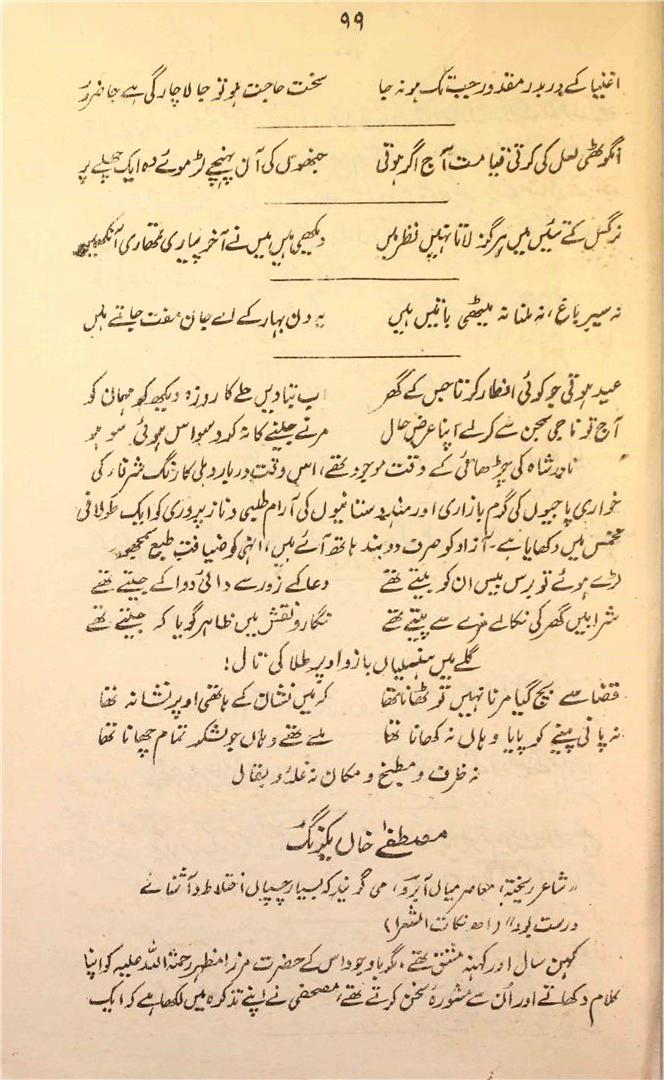 ۹۹
اغنیا کے در بدر مقدور جب تک ہو نہ جا سخت حاجت ہو تو جا لاچارگی ہے جا ضرور
انگوٹھی لعل کی کرتی قیامت آج اگر ہوتی جنھوں کی آن پہنچے لڑ موئے وہ ایک چھلے پر
نرگس کے تئیں میں ہرگز لاتا نہیں نظر میں دیکھی ہیں میں نے آخر پیاری تمھاری آنکھیں
نہ سیر باغ، نہ ملنا نہ میٹھی باتیں ہیں یہ دن بہار کے اے جان مفت جاتے ہیں
عید ہوتی جو کوئی افطار کرتا جس کے گھر اب بتا دیں ہیں کا روزہ دیکھ کر مہمان کو
آج تو ناجی سجن سے کر لے اپنا عرض حال مرنے جینے کا نہ کر وسواس ہوئی سو ہو
نادر شاہ کی چڑھائی کے وقت موجود تھے، اس وقت دربار دہلی کا رنگ شرفا کی
خواری پاجیوں کی گرم بازاری اور ہندوستانیوں کی آرام طلبی و ناز پروری کو ایک طولانی
مخمس میں دکھایا ہے۔ آزاد کو صرف دو بند ہاتھ آئے ہیں، انہی کو ضیافت طبع سمجھو
لڑے ہوئے تو برس بیس ان کو بیتے تھے دعا کے زور سے دائی دوا کے جیتے تھے
شرابیں گھر کی نکالے مزے سے پیتے تھے نگار و نقش میں ظاہر گویا کہ چیتے تھے
گلے میں ہنسلیاں بازو اوپر طلا کی نال!
قضا سے بچ گیا مرنا نہیں تو ٹھانا تھا کہ میں نشان کے ہاتھی اوپر نشانہ تھا
نہ پانی پینے کو پایا وہاں نہ کھانا تھا ملے تھے وہاں جو لشکر تمام چھانا تھا
نہ ظرف و مطبخ و مکان نہ غلہ و بقال
مصطفےٰ خاں یکرنگ
"شاعر ریختہ، معاصر میاں آبرو، می گویند کہ بسیار چسپاں اختلاط و آشنائے
درست بود" (اھ نکات الشعرا)
کہن سال اور کہنہ مشق تھے، مگر باوجود اس کے حضرت مرزا مظہر رحمۃ اللہ علیہ کو اپنا
کلام دکھاتے اور اُن سے مشورۂ سخن کرتے تھے، مصحفی نے اپنے تذکرہ میں لکھا ہے کہ ایک